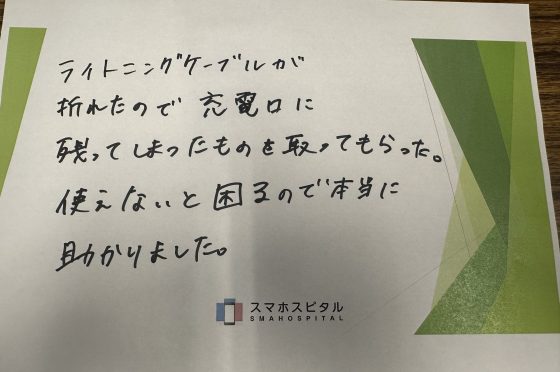 ライトニングケーブルが
折れたので充電口に
残ってしまったものを取ってもらった。
使えないと困るので本当に
助かりました。
スマホスピタル
SMAHOSPITAL